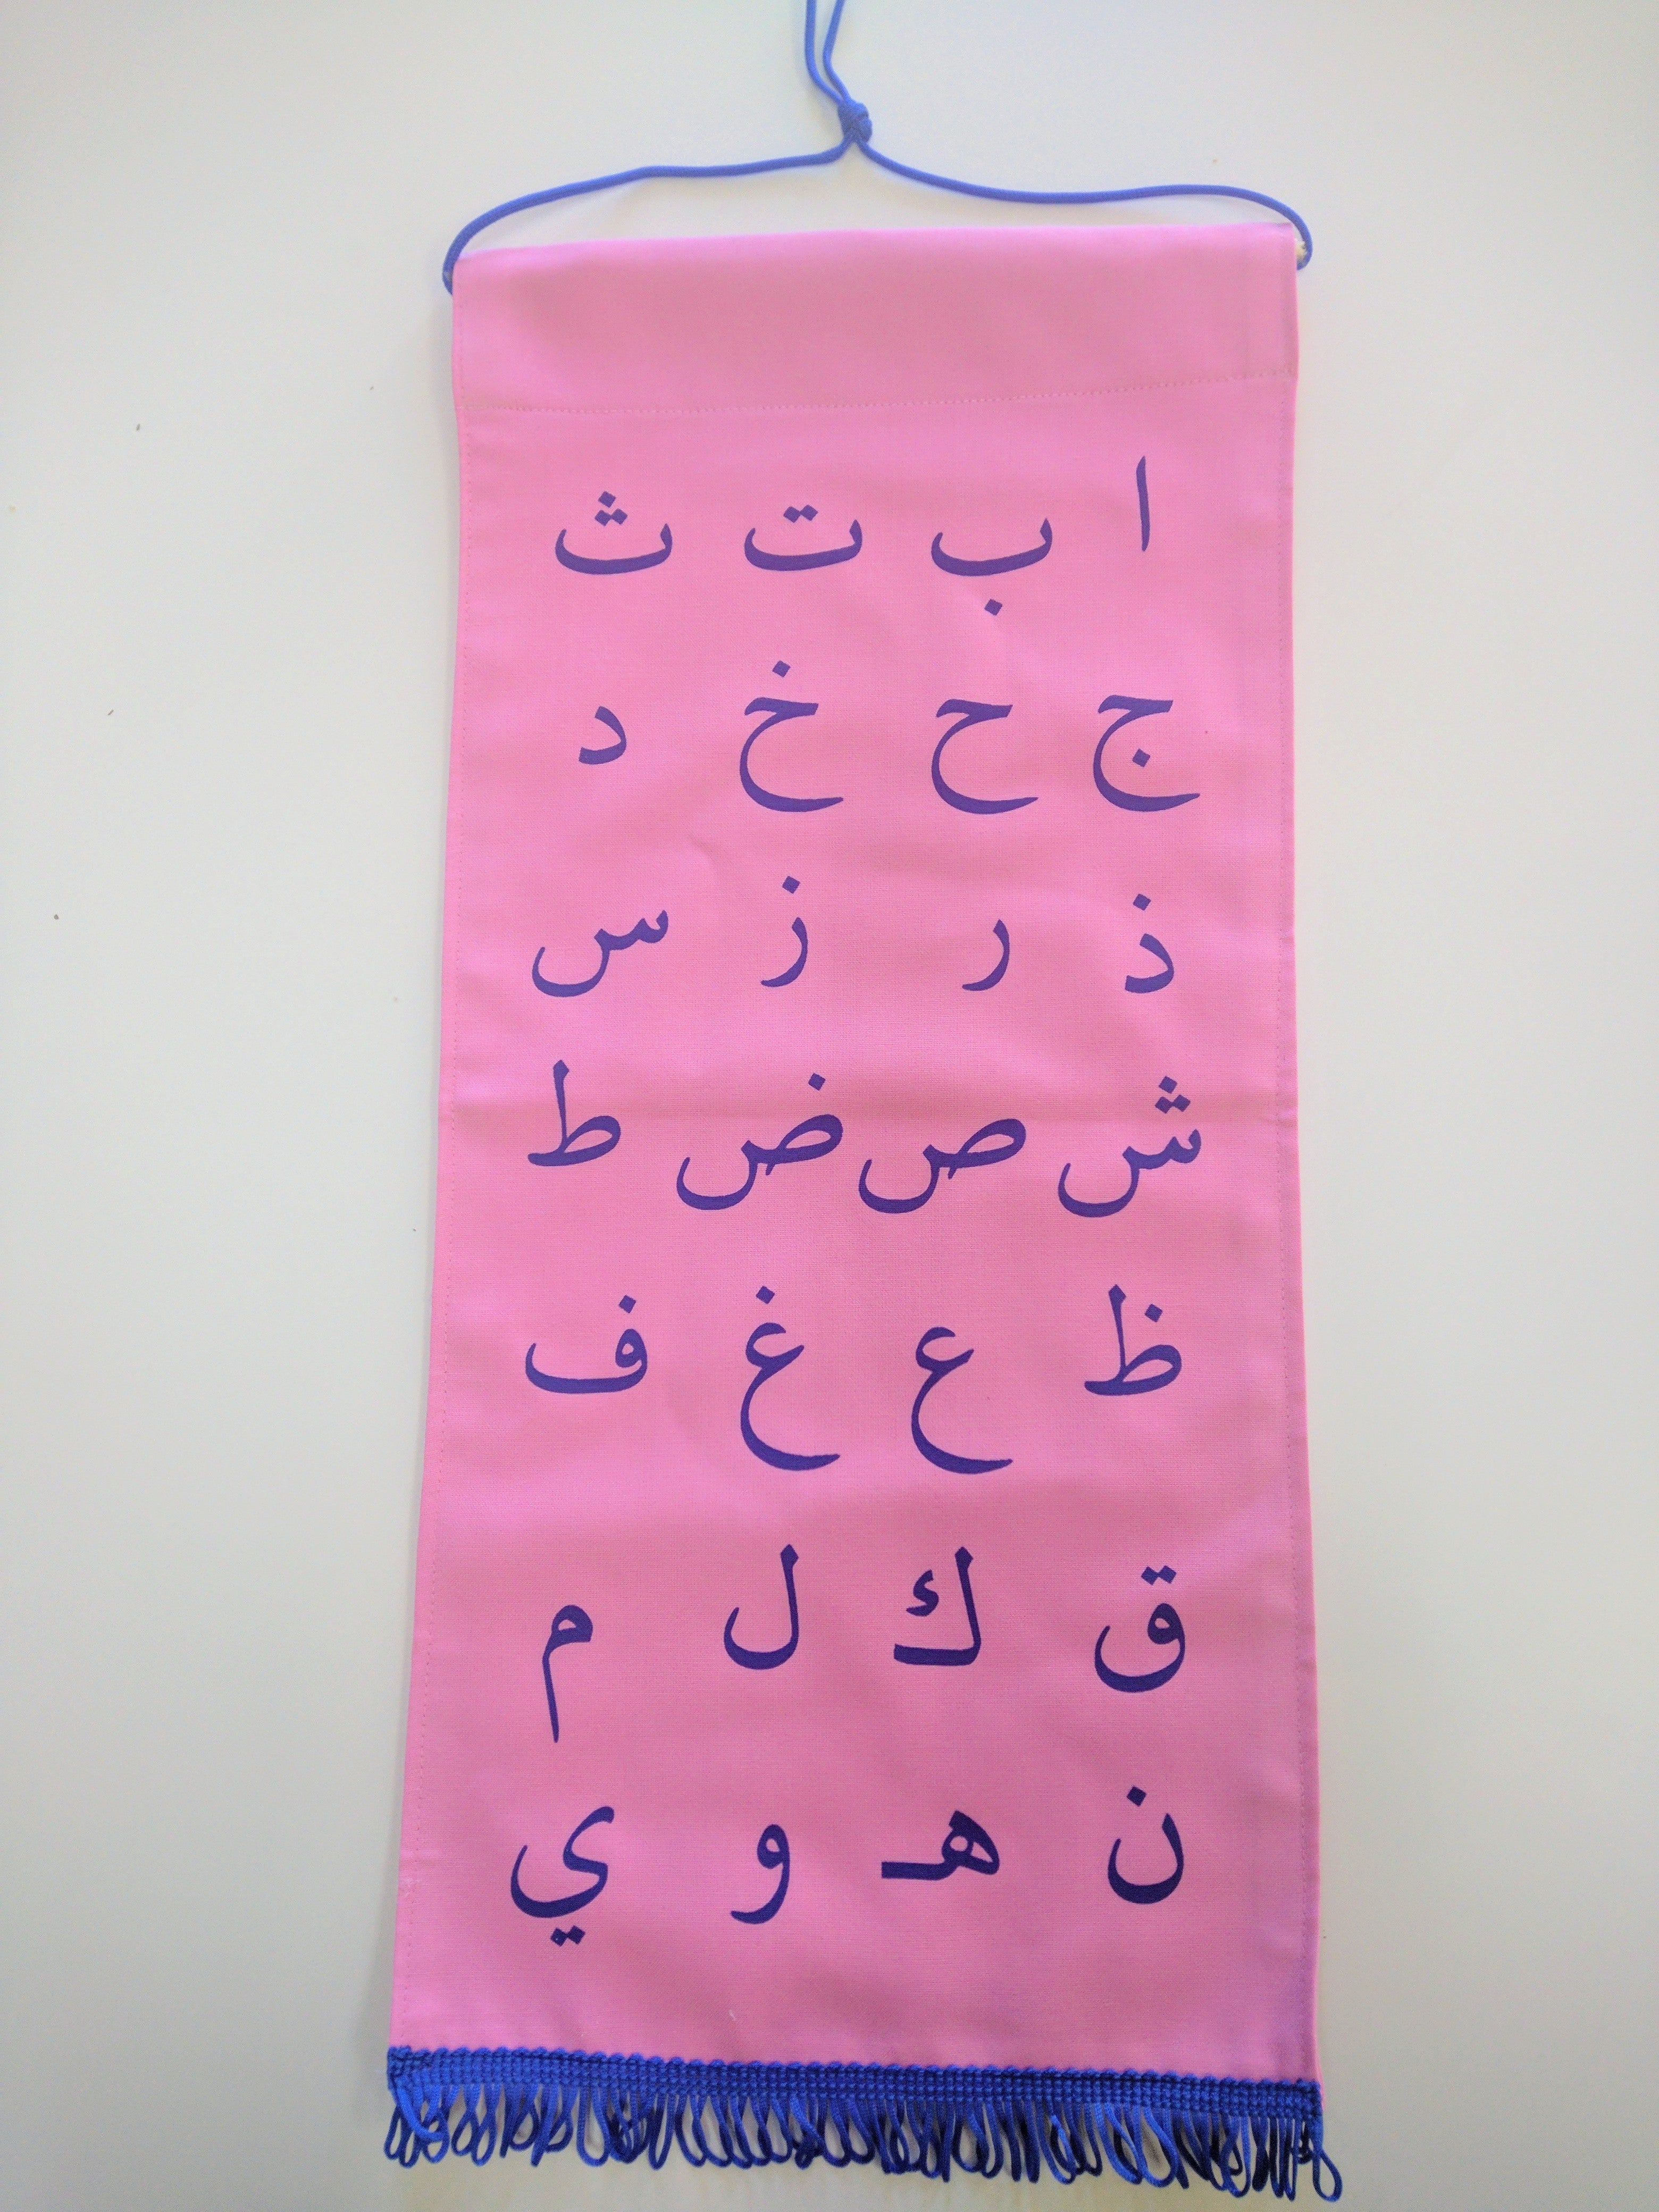 ا ب ت ث
ج ح خ د
ذ ر ز س
ش ص ض ط
ظ ع غ ف
ق ك ل م
ن هـ و ي